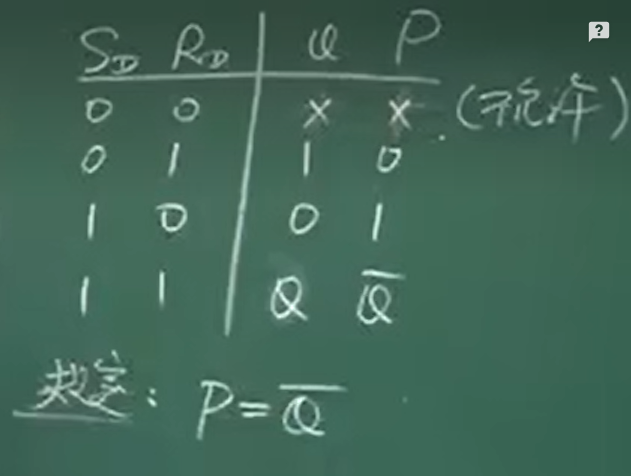 S_D R_D Q P
0 0 × × (不允许)
0 1 1 0
1 0 0 1
1 1 Q Q̅
规定: P = Q̅